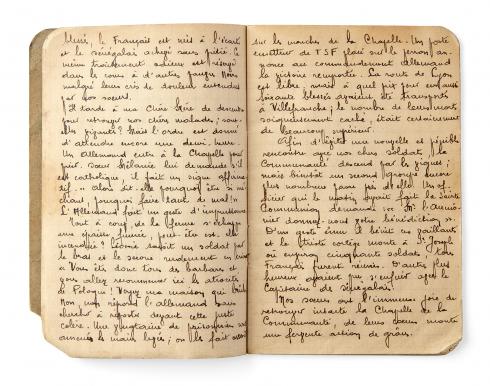 le Français est mis à l'écart
et le Sénégalais achevé sans pitié. Ce
même traitement odieux est infligé
dans la cour à d'autres Noirs
malgré leurs cris de douleur entendus
par nos sœurs.
Il tarde à ma Chère Mère de descendre
pour retrouver nos chères malades;
Mais l'ordre est donné
d'attendre encore une demi-heure.
Un Allemand entre à la Chapelle pour
Sœur Mélanie lui demande s'il
est catholique, il fait un signe affirma-
tif. " Alors dit-elle pourquoi être si mé-
chant, pourquoi faire tant de mal "
L'Allemand fait un geste d'impuissance
Tout à coup de la ferme s'échappe
une épaisse fumée, peut-être est-elle
incendiée? saisit un soldat par
le bras et le secoue rudement
" Vous êtes donc tous des barbares et
vous allez recommencer ici les atrocités
de Pologne! Voyez une maison qui brûle
Non, non répond l'allemand sans
chercher à riposter devant cette juste
colère. Une de prisonniers sont
amenés les mains liées; on les fait
sur les marches de la Chapelle. Un poste
émetteur de TSF placé sur le perron, an-
nonce au commandement allemand
la victoire remportée. La route de Lyon
est libre, mais à quel prix pour
blessés avaient été transportés
à Villefranche; le nombre de leurs morts
soigneusement caché, était certainement
de beaucoup supérieur.
Afin d'éviter une nouvelle et pénible
rencontre avec nos chers soldats, la
Communauté descend par les vignes;
mais bientôt un second groupe encore
plus nombreux passe près d'elle. Un of-
ficier qui le matin avait fait la Sainte
Communion, demande à M. l'Aumô-
nier donnez-nous votre bénédiction ".
D'un geste ému il bénit ces vaillants
et le triste cortège monte à St Joseph
où environ cinquante soldats, tous
Français furent réunis. D'autres plus
heureux avaient pu s'enfuir avec le
Capitaine de Sénégalais!
Nos sœurs ont l'immense joie de
retrouver intacte la Chapelle de la
Communauté, de leurs cœurs monte
une fervente action de grâces.